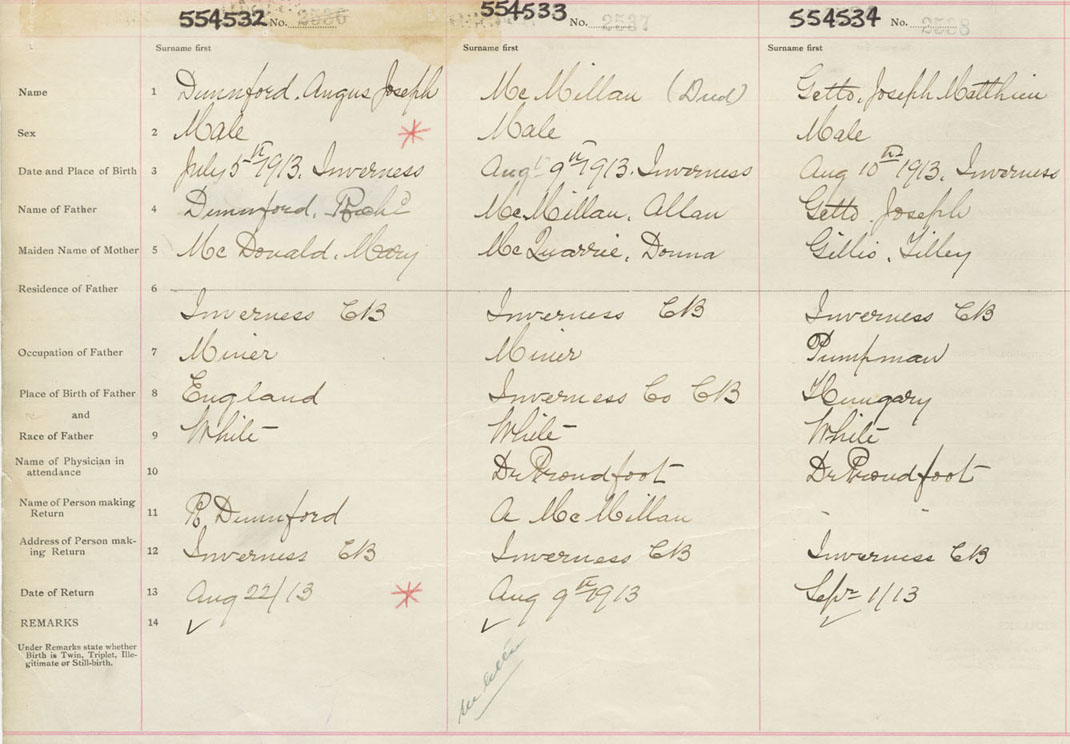 554532 No. 2536 554533 No. 2537 554534 No. 2538
Surname first Surname first Surname first
Name 1 Dunnford, Angus Joseph Mc Millan (Died) Getto, Joseph Matthieu
Sex 2 Male Male Male
Date and Place of Birth 3 July 5th 1913, Inverness Aug 9th 1913, Inverness Aug 10th 1913, Inverness
Name of Father 4 Dunnford, Mc Millan, Allan Getto Joseph
Maiden Name of Mother 5 Mc Donald, Mary Mc Quarrie, Donna Gillis, Tilley
Residence of Father 6
Inverness CB Inverness CB Inverness CB
Occupation of Father 7 Miner Miner Pumpman
Place of Birth of Father 8 England Inverness Co CB Hungary
and
Race of Father 9 White White White
Name of Physician in
attendance 10 Dr Proudfoot Dr Proudfoot
Name of Person making
Return 11 R. Dunnford A Mc Millan " "
Address of Person mak-
ing Return 12 Inverness CB Inverness CB Inverness CB
Date of Return 13 Aug 22/13 Aug 9th 1913 Sepr 1/13
REMARKS 14
Under Remarks state whether
Birth is Twin, Triplet, Ille-
gitimate or Still-birth.